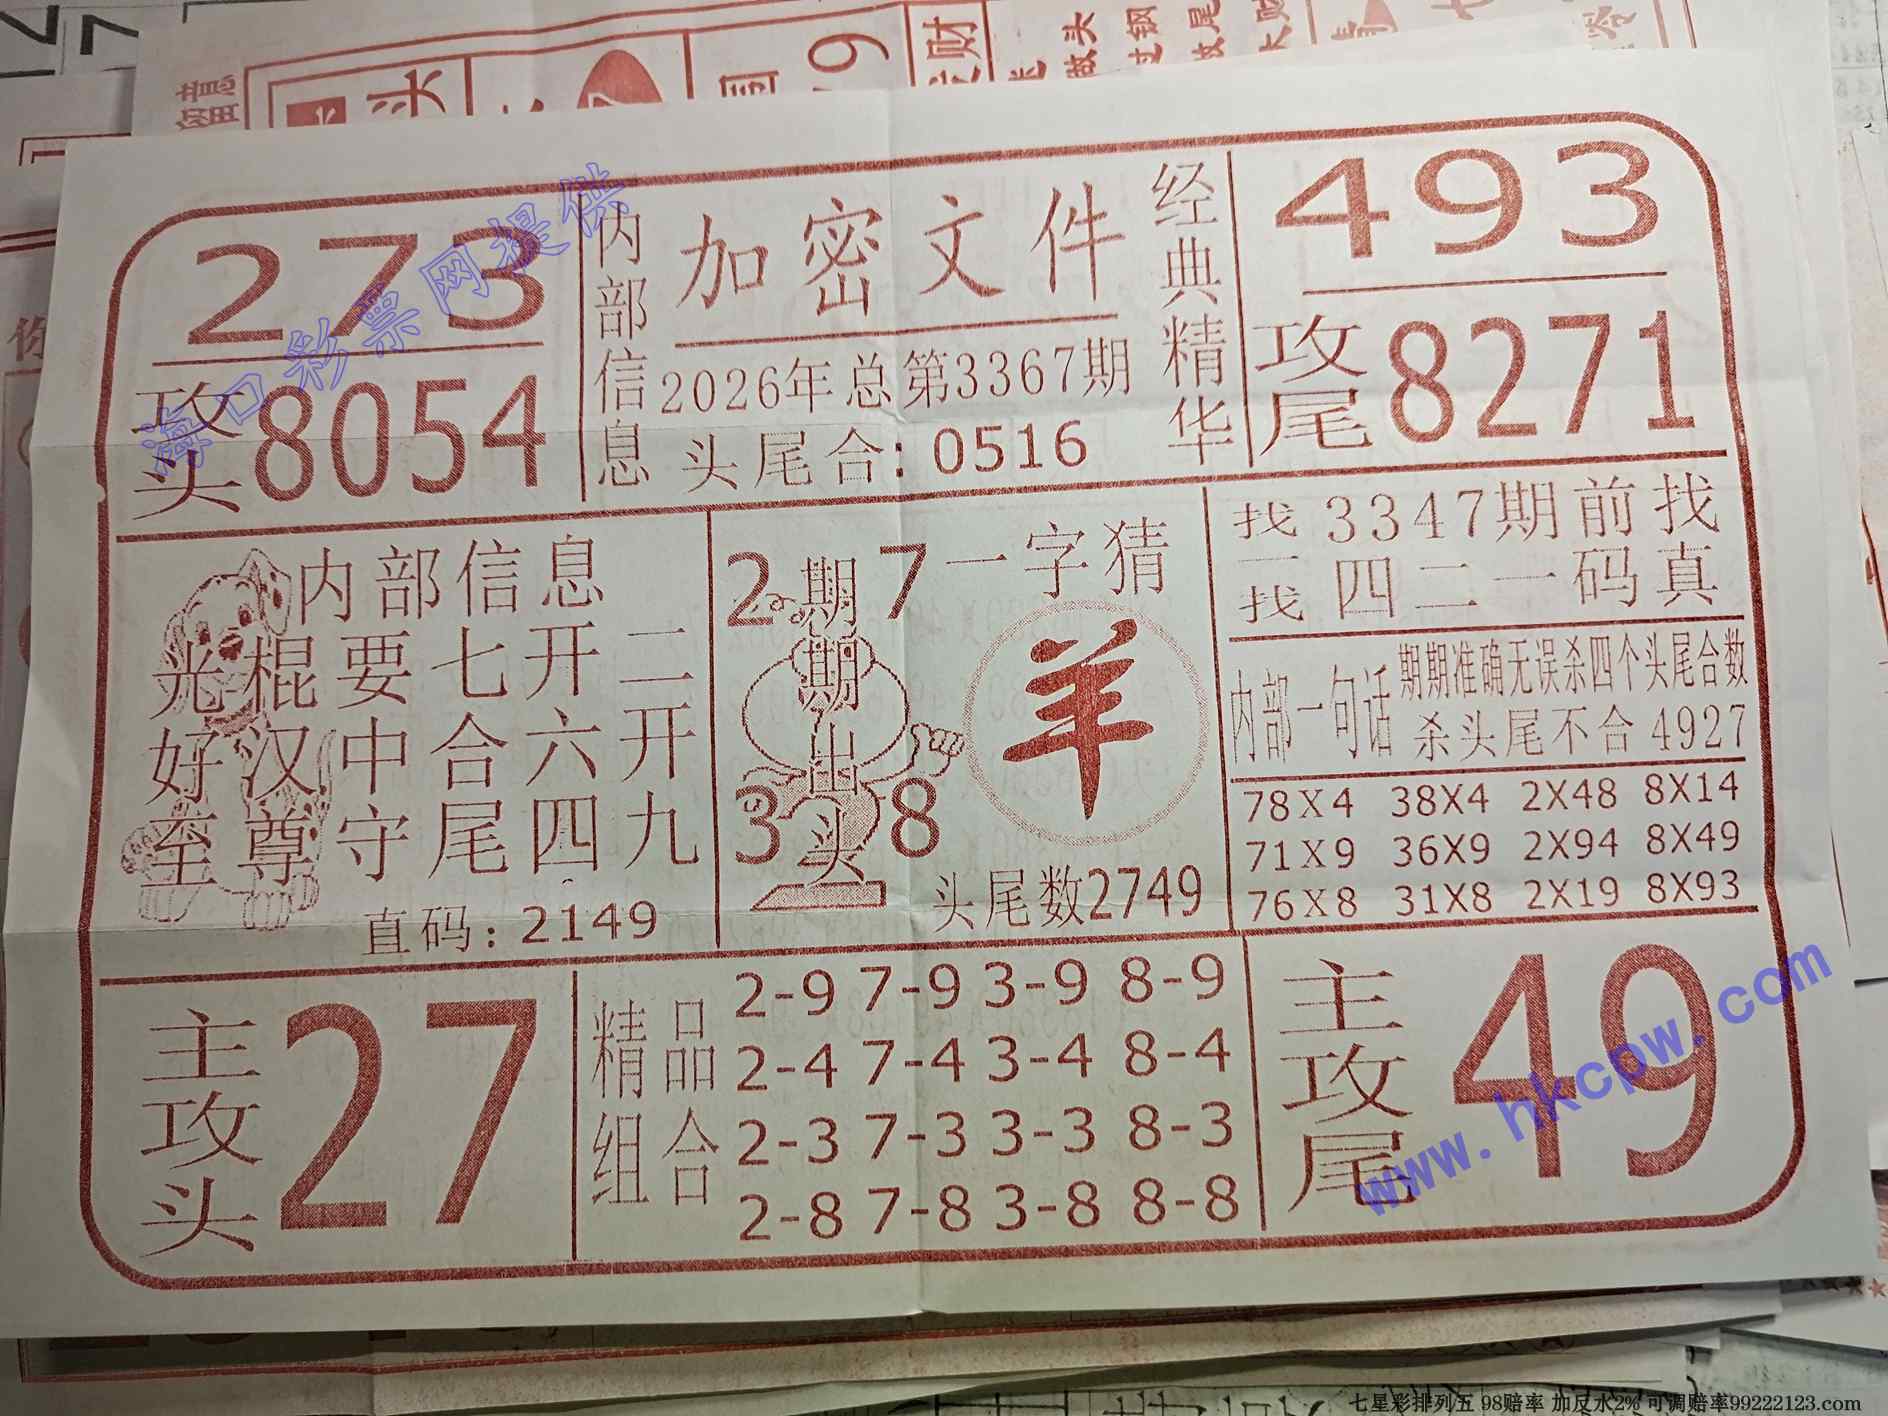 273
攻头 8054
内部信息
加密文件
2026年总第3367期
头尾合: 0516
经典精华
493
攻尾 8271
内部信息
光棍要七开二
好汉中合六开
至尊守尾四九
直码: 2149
2 7
期期出头
3 8
一字猜
羊
头尾数2749
找一找
3347期前找
四二一码真
内部一句话
期期准确无误杀四个头尾合数
杀头尾不合 4927
78X4 38X4 2X48 8X14
71X9 36X9 2X94 8X49
76X8 31X8 2X19 8X93
主攻头
27
精品组合
2-9 7-9 3-9 8-9
2-4 7-4 3-4 8-4
2-3 7-3 3-3 8-3
2-8 7-8 3-8 8-8
主攻尾
49
海口彩票网提供
www.hkcpw.com
七星彩排列五 98赔率 加反水2% 可调赔率99222123.com